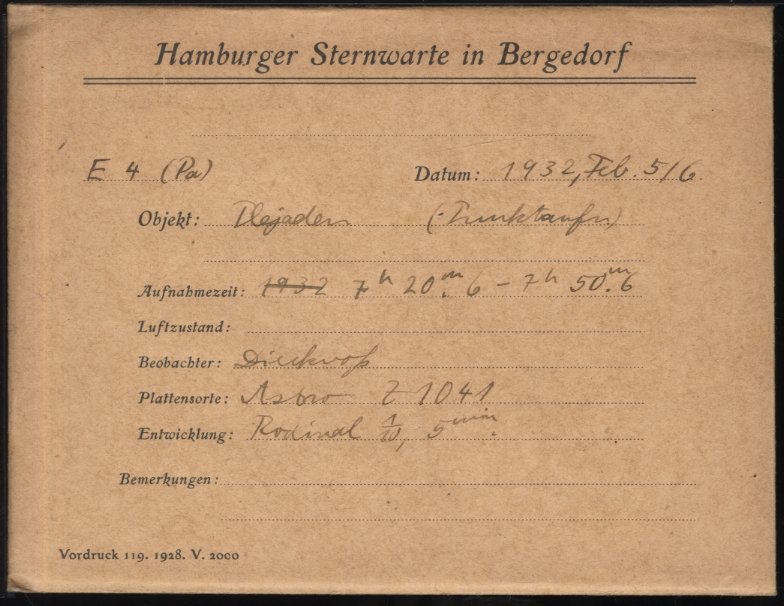 Hamburger Sternwarte in Bergedorf
E 4 (Pa) Datum: 1932, Feb. 5/6.
Objekt: Plejaden
Aufnahmezeit: 1932 7h 20m.6 – 7h 50m.6
Luftzustand:
Beobachter: Dieckvoß
Plattensorte: Astro Z 1041
Entwicklung: Rodinal 1/10, 5min.
Bemerkungen:
Vordruck 119. 1928. V. 2000